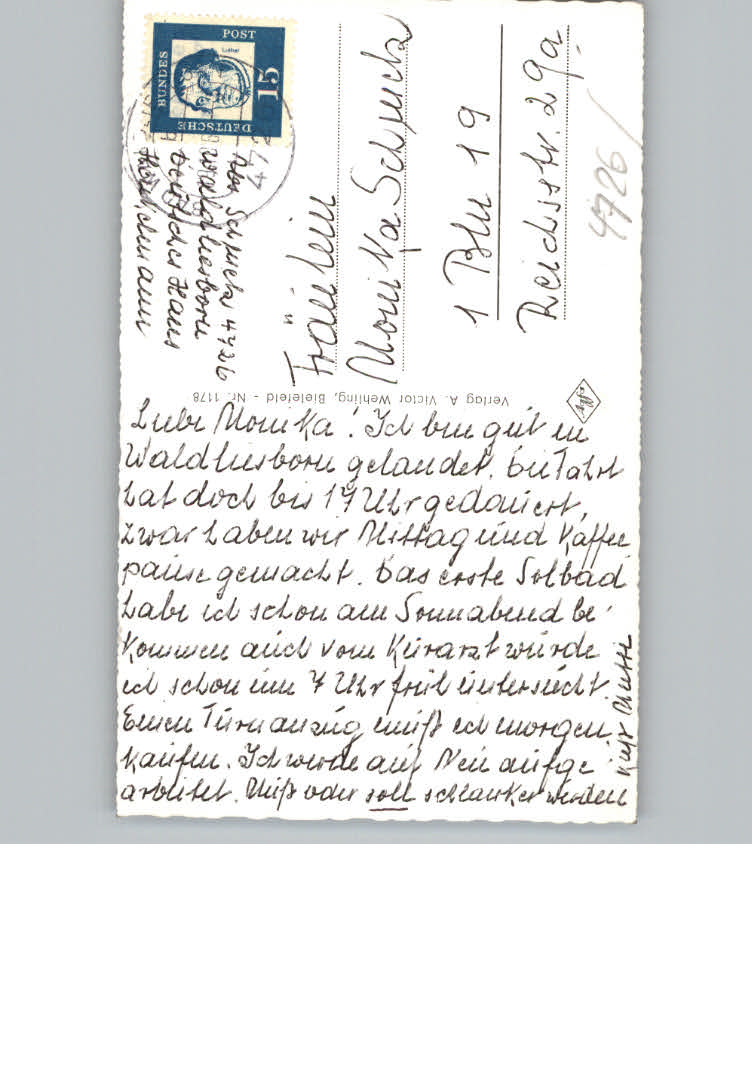 Liebe Monika! Ich bin gut in
Waldliesborn gelandet. Die Fahrt
hat doch bis 17 Uhr gedauert,
zwar haben wir Mittag und Kaffee
pause gemacht. Das erste Solbad
habe ich schon am Sonnabend be
kommen auch vom Kurarzt wurde
ich schon um 7 Uhr früh untersucht.
Einen Turnanzug muß ich morgen
kaufen. Ich werde auf Neu aufge
arbeitet. Muß oder soll schlanker werden
Kuß Mutti
Fräulein
Monika Schpieck
1 Bln 19
Reichsstr. 29a
4726/
4726
Waldliesborn
Deutsches Haus
Verlag A. Victor Wehling, Bielefeld - Nr. 1178
DEUTSCHE
BUNDES
POST
15
Luther